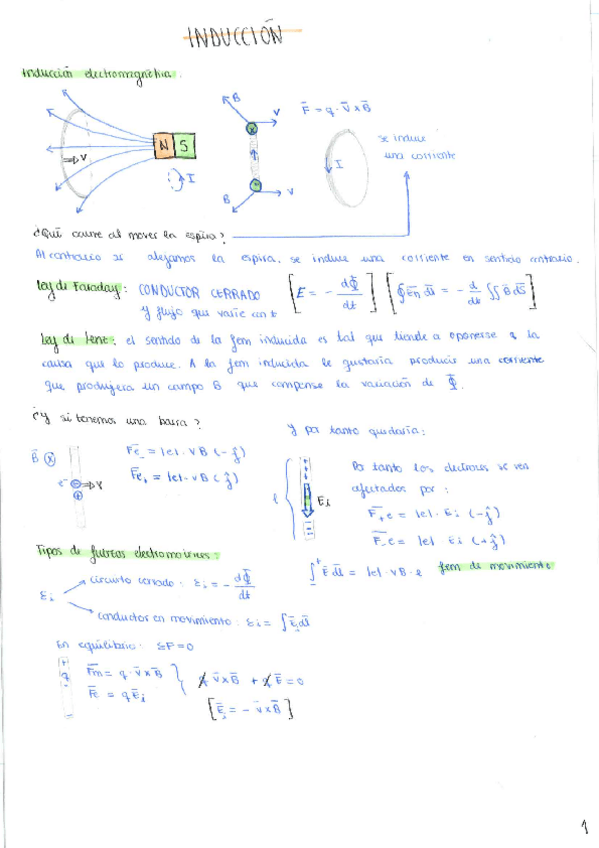 INDUCCIÓN
Inducción electromagnética.
B
V
F̄ = q · V̄ x B̄
N S
I
V
B
V
I
se induce
una corriente
¿Qué ocurre al mover la espira?
Al contrario si alejamos la espira, se induce una corriente en sentido contrario.
Ley de Faraday: CONDUCTOR CERRADO
y flujo que varíe con t
[E = - dΦ/dt] [∮ Ēn ds̄ = - d/dt ∬ B̄ ds̄]
Ley de Lenz: el sentido de la fem inducida es tal que tiende a oponerse a la
causa que lo produce. A la fem inducida le gustaría producir una corriente
que produjera un campo B que compense la variación de Φ̄.
¿Y si tenemos una barra?
B̄ ⊗
e⁻ ⊖ V
⊕
F̄e₋ = |e| · vB (-ĵ)
F̄e₊ = |e| · vB (ĵ)
Y por tanto quedaría:
l
Ei
Por tanto los electrones se ven
afectados por:
F̄₊e = |e| · Ei (-ĵ)
F̄₋e = |e| Ei (+ĵ)
∫₋⁺ Ē dl̄ = |e| · vB · l fem de movimiento
Tipos de fuerzas electromotrices:
εi
circuito cerrado: εi = - dΦ̄/dt
conductor en movimiento: εi = ∫ Ēi dl̄
En equilibrio: ΣF = 0
F̄m = q · v̄ x B̄
F̄e = q Ēi
q v̄ x B̄ + q Ē = 0
[Ēi = - v̄ x B̄]
1